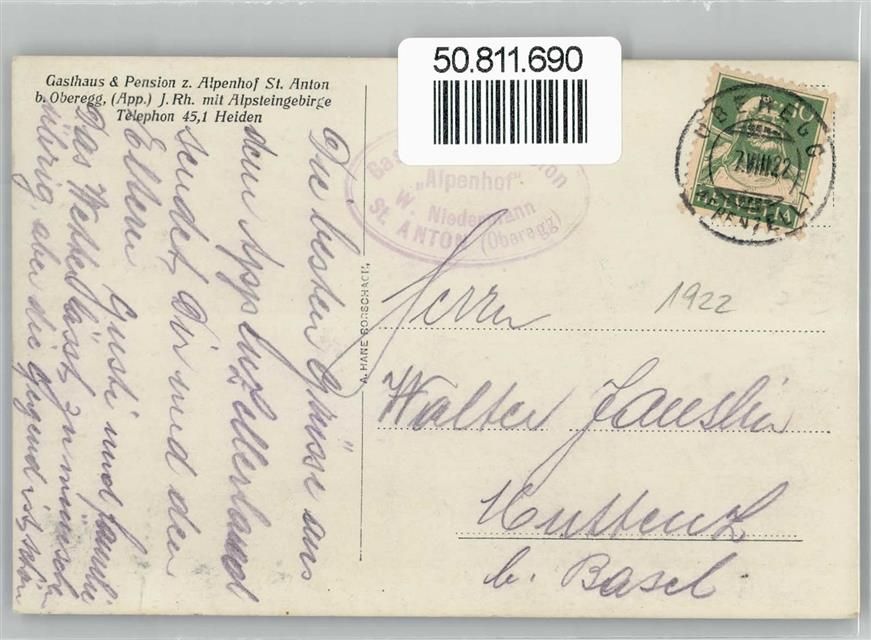 50.811.690
Gasthaus & Pension z. Alpenhof St. Anton
b. Oberegg, (App.) J. Rh. mit Alpsteingebirge
Telephon 45,1 Heiden
Die besten Grüsse aus
dem Appenzellerland
sendet Dir und den
Eltern Gusti und Familie
Das Wetter lässt zu wünschen
übrig, aber die Gegend ist schön
A. HANE RORSCHACH
"Alpenhof"
W. Niedermann
St. ANTON (Oberegg)
OBEREGG
7.VIII.22
HELVETIA
10
1922
Herrn
Walter Jauslin
Muttenz
b. Basel